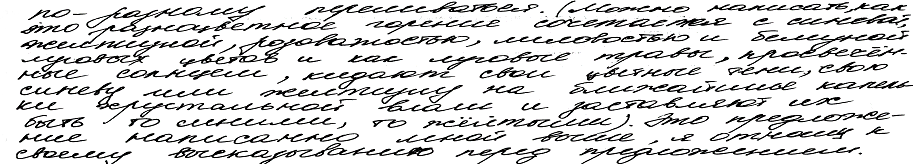 по-разному переливаться. (Можно написать, как
это разноцветное горение сочетается с синевой,
желтизной, розоватостью, лиловостью и белизной
луговых цветов и как луговые травы, просвечен-
ные солнцем, кидают свои цветные тени, свою
синеву или желтизну на ближайшие капель-
ки хрустальной влаги и заставляют их
быть то синими, то жёлтыми). Это предложе-
ние написанно мной выше, я отношу к
своему высказыванию перед предложением.